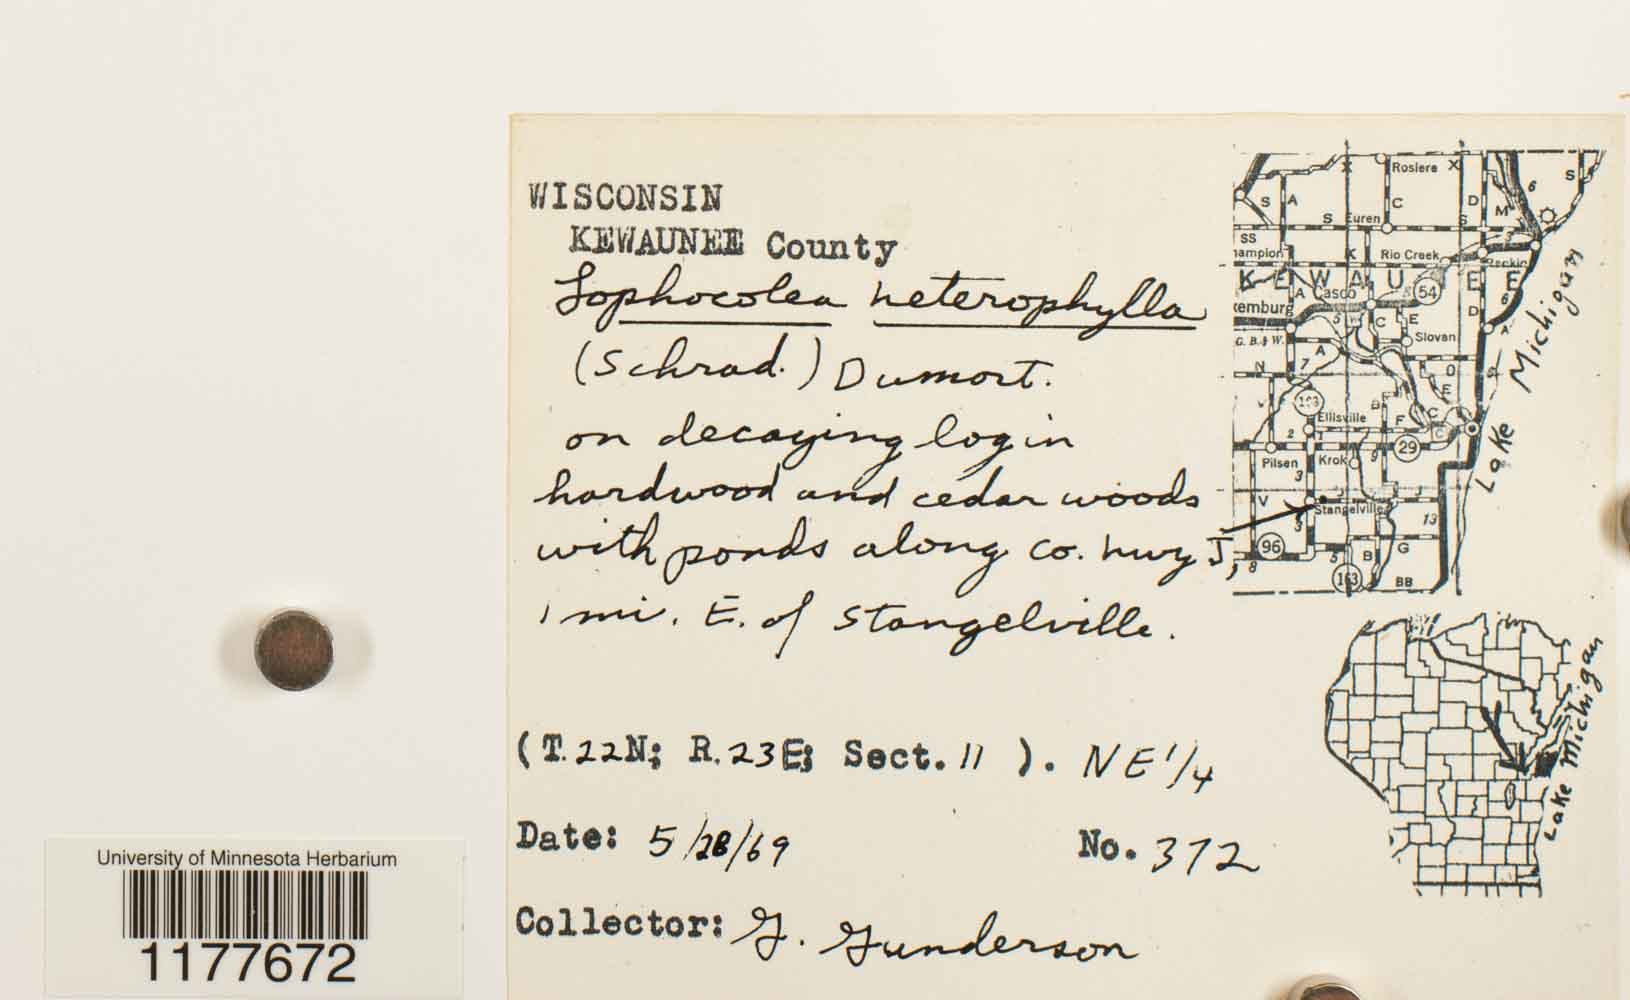 WISCONSIN
KEWAUNEE County
Lophocolea heterophylla
(Schrad.) Dumort.
on decaying log in
hardwood and cedar woods
with ponds along co. hwy J,
1 mi. E. of Stangelville.
(T.22N; R.23E; Sect.11 ). NE 1/4
Date: 5/28/69
No. 372
Collector: G. Gunderson
University of Minnesota Herbarium
1177672
Rosiere
X X
S A C D M 6 S
S Euren S
SS
hampion K Rio Creek
K E W A U E E
A Casco 54 6
xemburg 5 C E D A
G. B. & W. Slovan
N 7 A O
E
Ellisville F C
2 1 29
Pilsen Krok 9
3
V J J
Stangelville
3 13
96 5 B G
8 163 BB
Lake Michigan
Lake Michigan